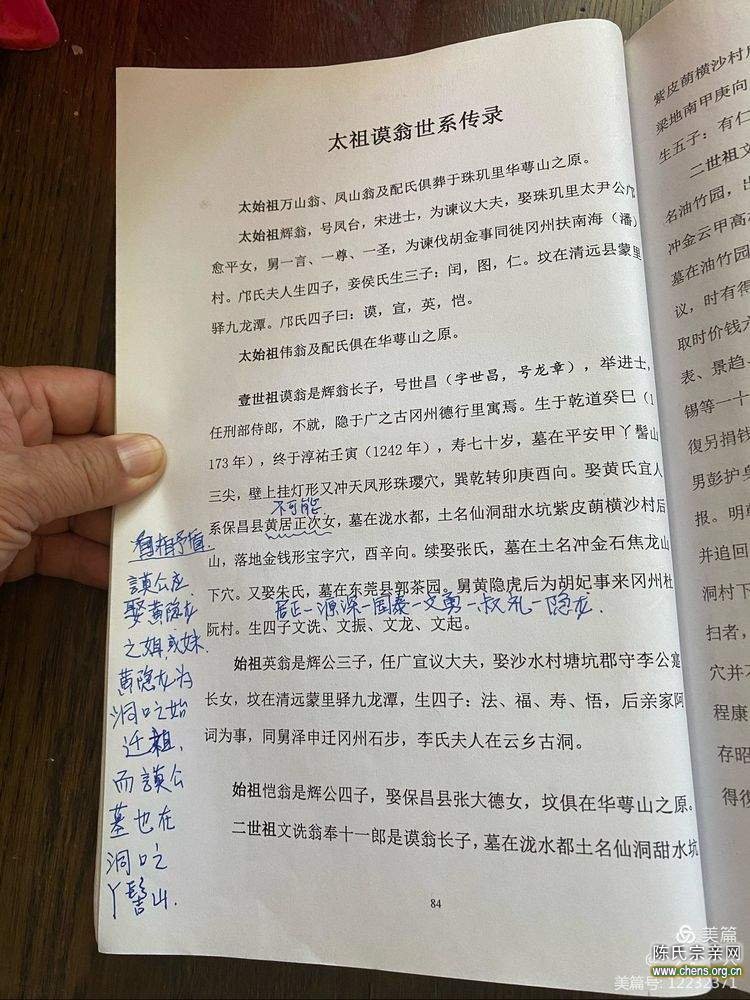 太祖谟翁世系传录
太始祖万山翁、凤山翁及配氏俱葬于珠玑里华萼山之原。
太始祖辉翁，号凤台，宋进士，为谏议大夫，娶珠玑里太尹公邝
愈平女，舅一言、一尊、一圣，为谏伐胡金事同徙冈州扶南海（潘）
村。邝氏夫人生四子，妾侯氏生三子：闰，图，仁。坟在清远县蒙里
驿九龙潭。邝氏四子曰：谟，宣，英，恺。
太始祖伟翁及配氏俱在华萼山之原。
壹世祖谟翁是辉翁长子，号世昌（字世昌，号龙章），举进士，
任刑部侍郎，不就，隐于广之古冈州德行里寓焉。生于乾道癸巳（1
173年），终于淳祐壬寅（1242年），寿七十岁，墓在平安甲丫髻山
三尖，壁上挂灯形又冲天凤形珠璎穴，巽乾转卯庚酉向。娶黄氏宜人
不可能
系保昌县黄居正次女，墓在泷水都，土名仙洞甜水坑紫皮萌横沙村后
山，落地金钱形宝字穴，酉辛向。续娶张氏，墓在土名冲金石焦龙山
下穴。又娶朱氏，墓在东莞县郭茶园。舅黄隐虎后为胡妃事来冈州杜
居正—源深—国泰—文勇—叔礼—隐龙.
阮村。生四子文诜、文振、文龙、文起。
始祖英翁是辉公三子，任广宣议大夫，娶沙水村塘坑郡守李公寔
长女，坟在清远蒙里驿九龙潭，生四子：法、福、寿、悟，后亲家阿
词为事，同舅泽申迁冈州石步，李氏夫人在云乡古洞。
始祖恺翁是辉公四子，娶保昌县张大德女，坟俱在华萼山之原。
二世祖文诜翁奉十一郎是谟翁长子，墓在泷水都土名仙洞甜水坑
84
自相予盾.
謨公应
娶黄隐龙
之姐或妹
黄隐龙为
洞口之始
迁祖,
而謨公
墓也在
洞口之
丫髻山.
紫皮萌横沙村
梁地南甲庚向
生五子：有仁
二世祖文
名油竹园，出
冲金云甲高
墓在油竹园
议，时有得
取时价钱
表、景趋、
锡等一十
復另捐钱
男彭护身
报。明
并追回
洞村下
扫者，
穴并不
程康
存昭
得復
美篇
陈氏宗亲网
www.chens.org.cn
美篇号: 12232371